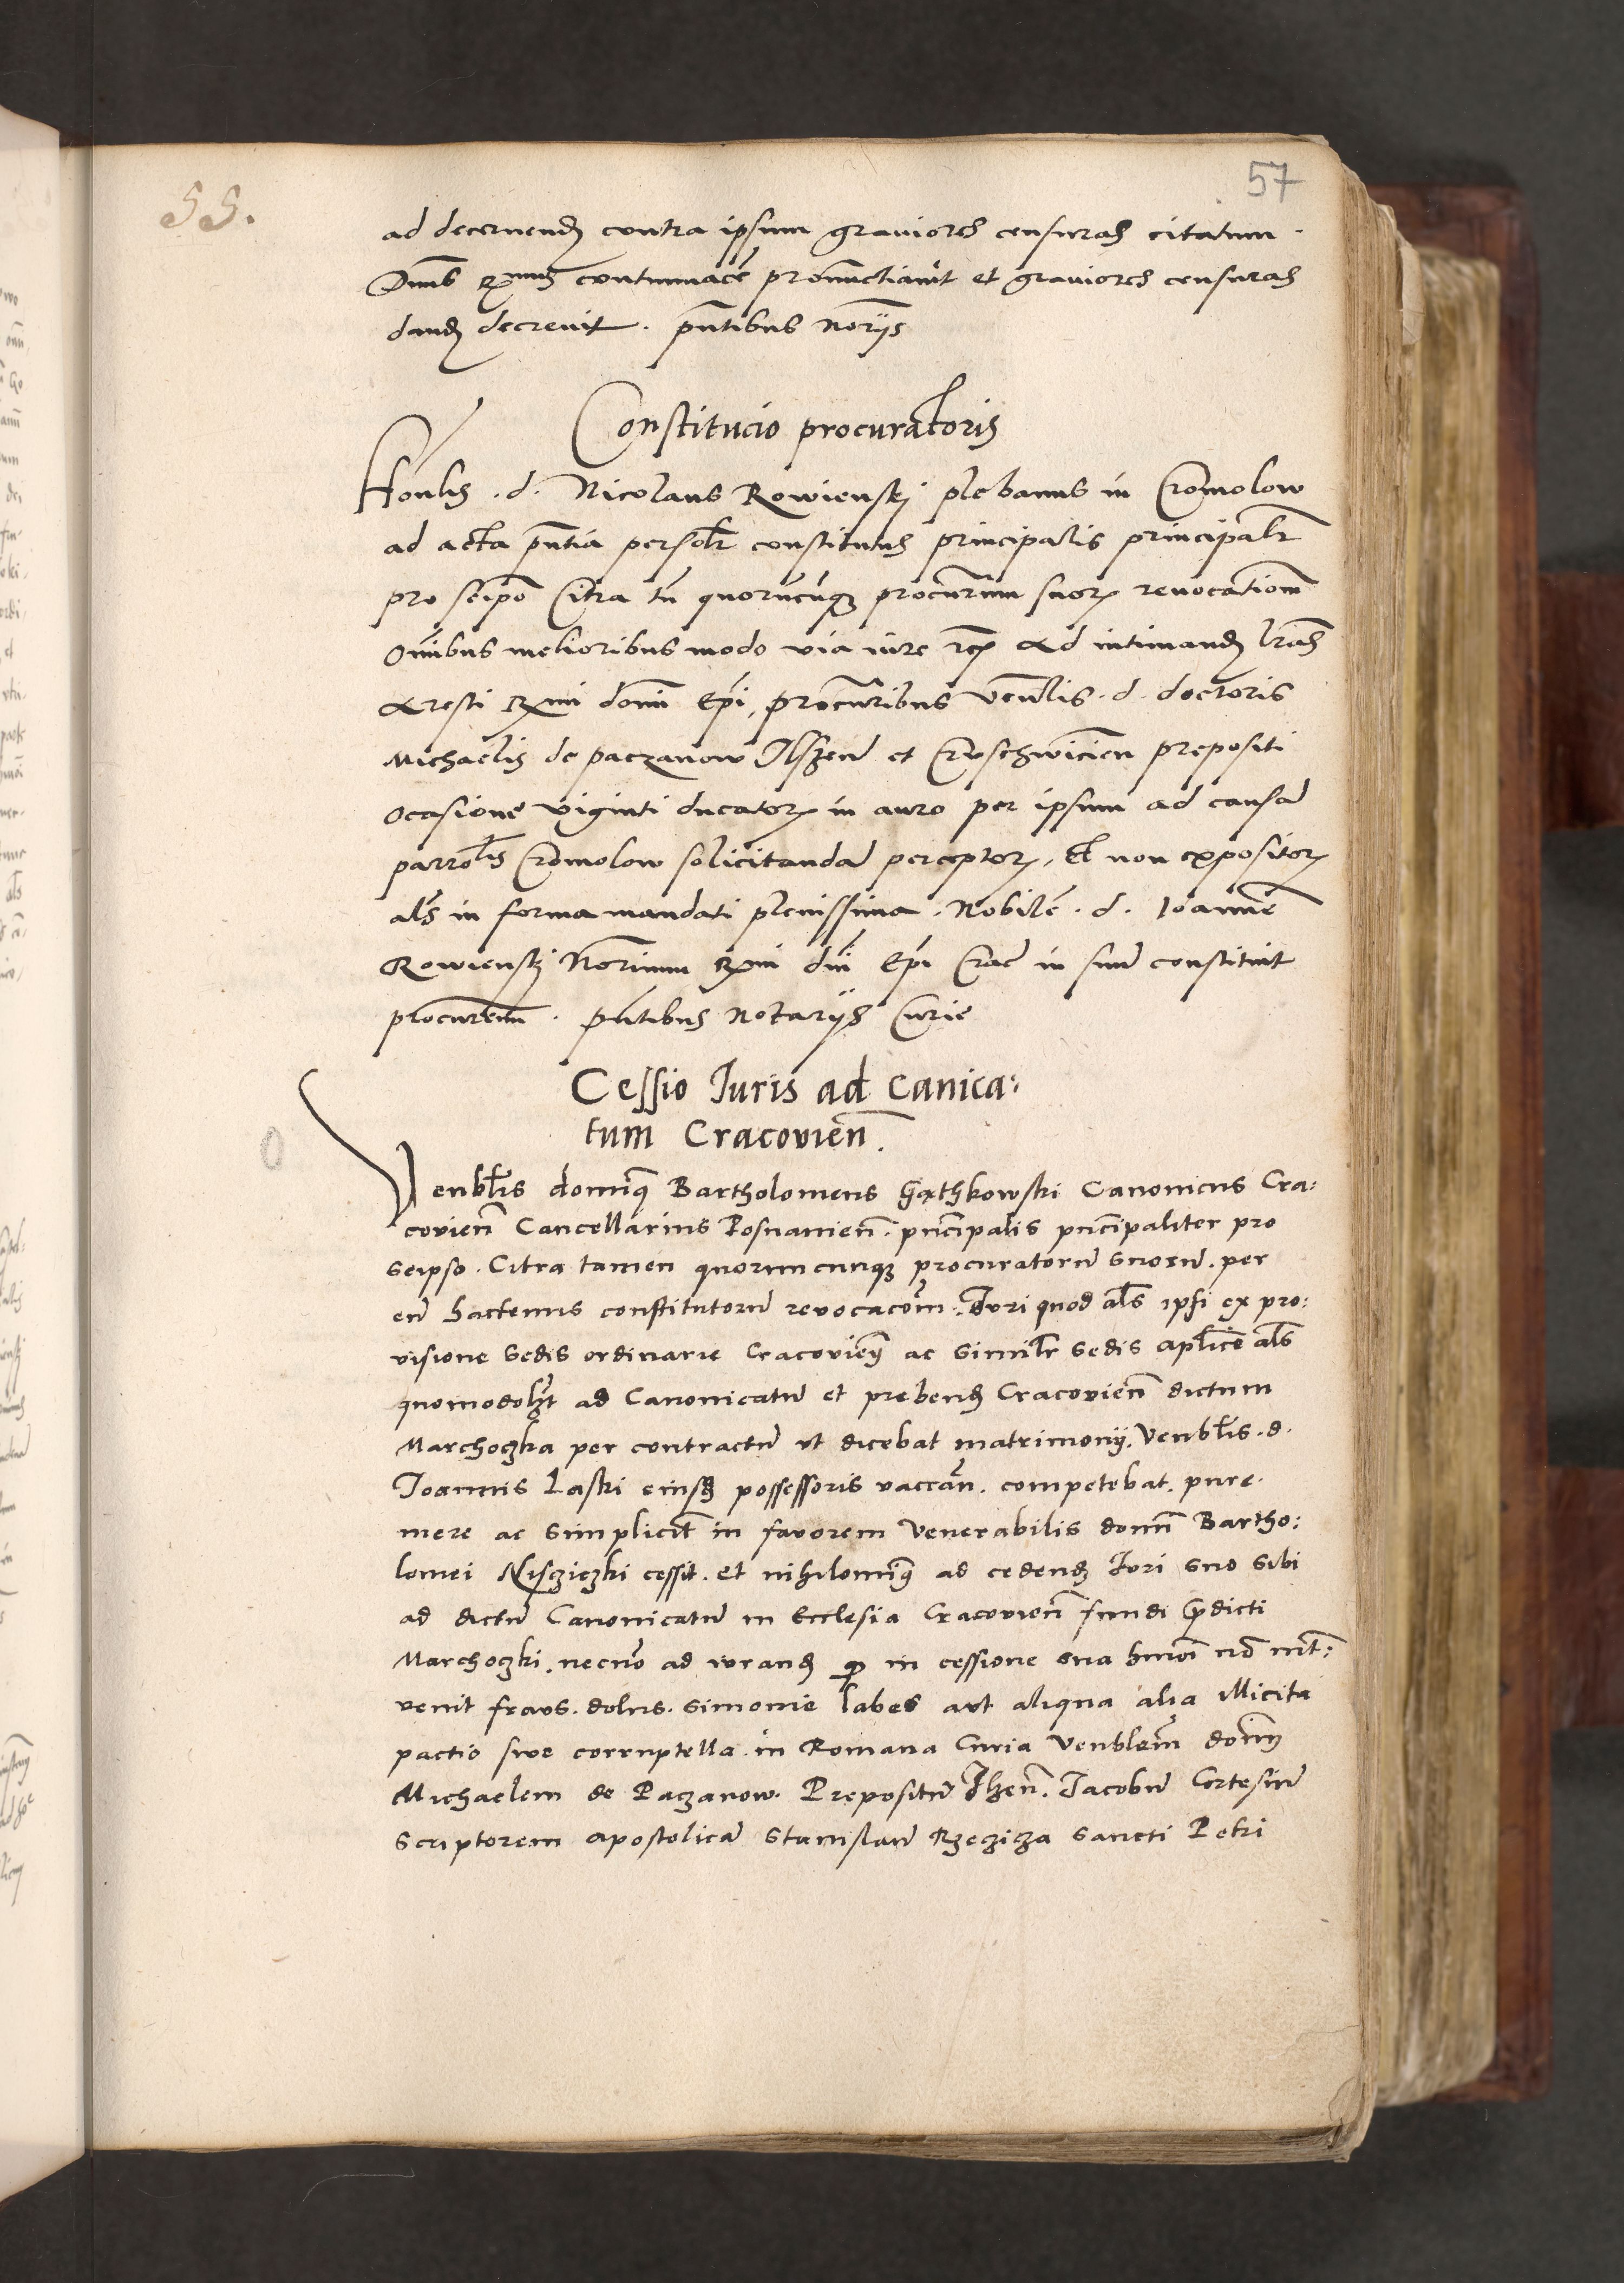 57
55.
ad decernend contra ipsum grauiores censuras citatum.
Dnus Rmus contumacē pronūctiauit et grauiores censuras
dand decreuit. pntibus Norijs
Constitucio procuratoris
Honlis. d. Nicolaus Rowienski plebanus in Cromolow
ad acta pntia persolr constitutus principalis principalr
pro seipo Citra tn quorūcūq procurum suor reuocationem
Omibus melioribus modo via iure rc Ad intimand lras
Aresti Rmi domi Epi, procuribus venlis. d. doctoris
Michaelis de paczanow Ilszen et Cruschwicien prepositi
Ocasione viginti ducator in auro per ipsum ad causā
parrolis Cromolow solicitandā perceptor, Et non expositor
als in forma mandati plenissima. Nobilē. d. Ioannē
Rowienski Norium Rmi dni Epi Crac in suū constituit
procurem. pntibus Notarijs Curie
Cessio Iuris ad Canica:
tum Cracovien.
Venblis dominq Bartholomeus Gathkowski Canonicus Cra:
covien Cancellarius Posnanien. pncipalis pncipaliter pro
seipso. Citra tamen quorumcunq procuratorū suorū. per
eū hactenus constitutorū revocacom. Iuri quod als ipsi ex pro:
visione sedis ordinarie Cracovien ac similr sedis Aplice als
quomodolbt ad Canonicatū et prebend Cracovien dictum
Marchoczka per contractū vt dicebat matrimonij. Venblis. d.
Joannis Laski eiusd possessoris vaccan. competebat. pure.
mere ac simplicit in favorem Venerabilis domi Bartho:
lomei Niscziczki cessit. et nihilominq ad cedend Iuri suo sibi
ad dictū Canonicatū in Ecclesia Cracovien fundi pdicti
Marchoczki. necno ad iurand q in cessione sua hmoi no int:
venit fraus. dolus. simonie labes aut aliqua alia illicita
pactio sive corruptella. in Romana Curia Venblem domi
Michaelem de Paczanow. Prepositū Ilzen. Jacobū Cortesiū
scriptorem apostolicā stanislaū Rzeczicza sancti Petri